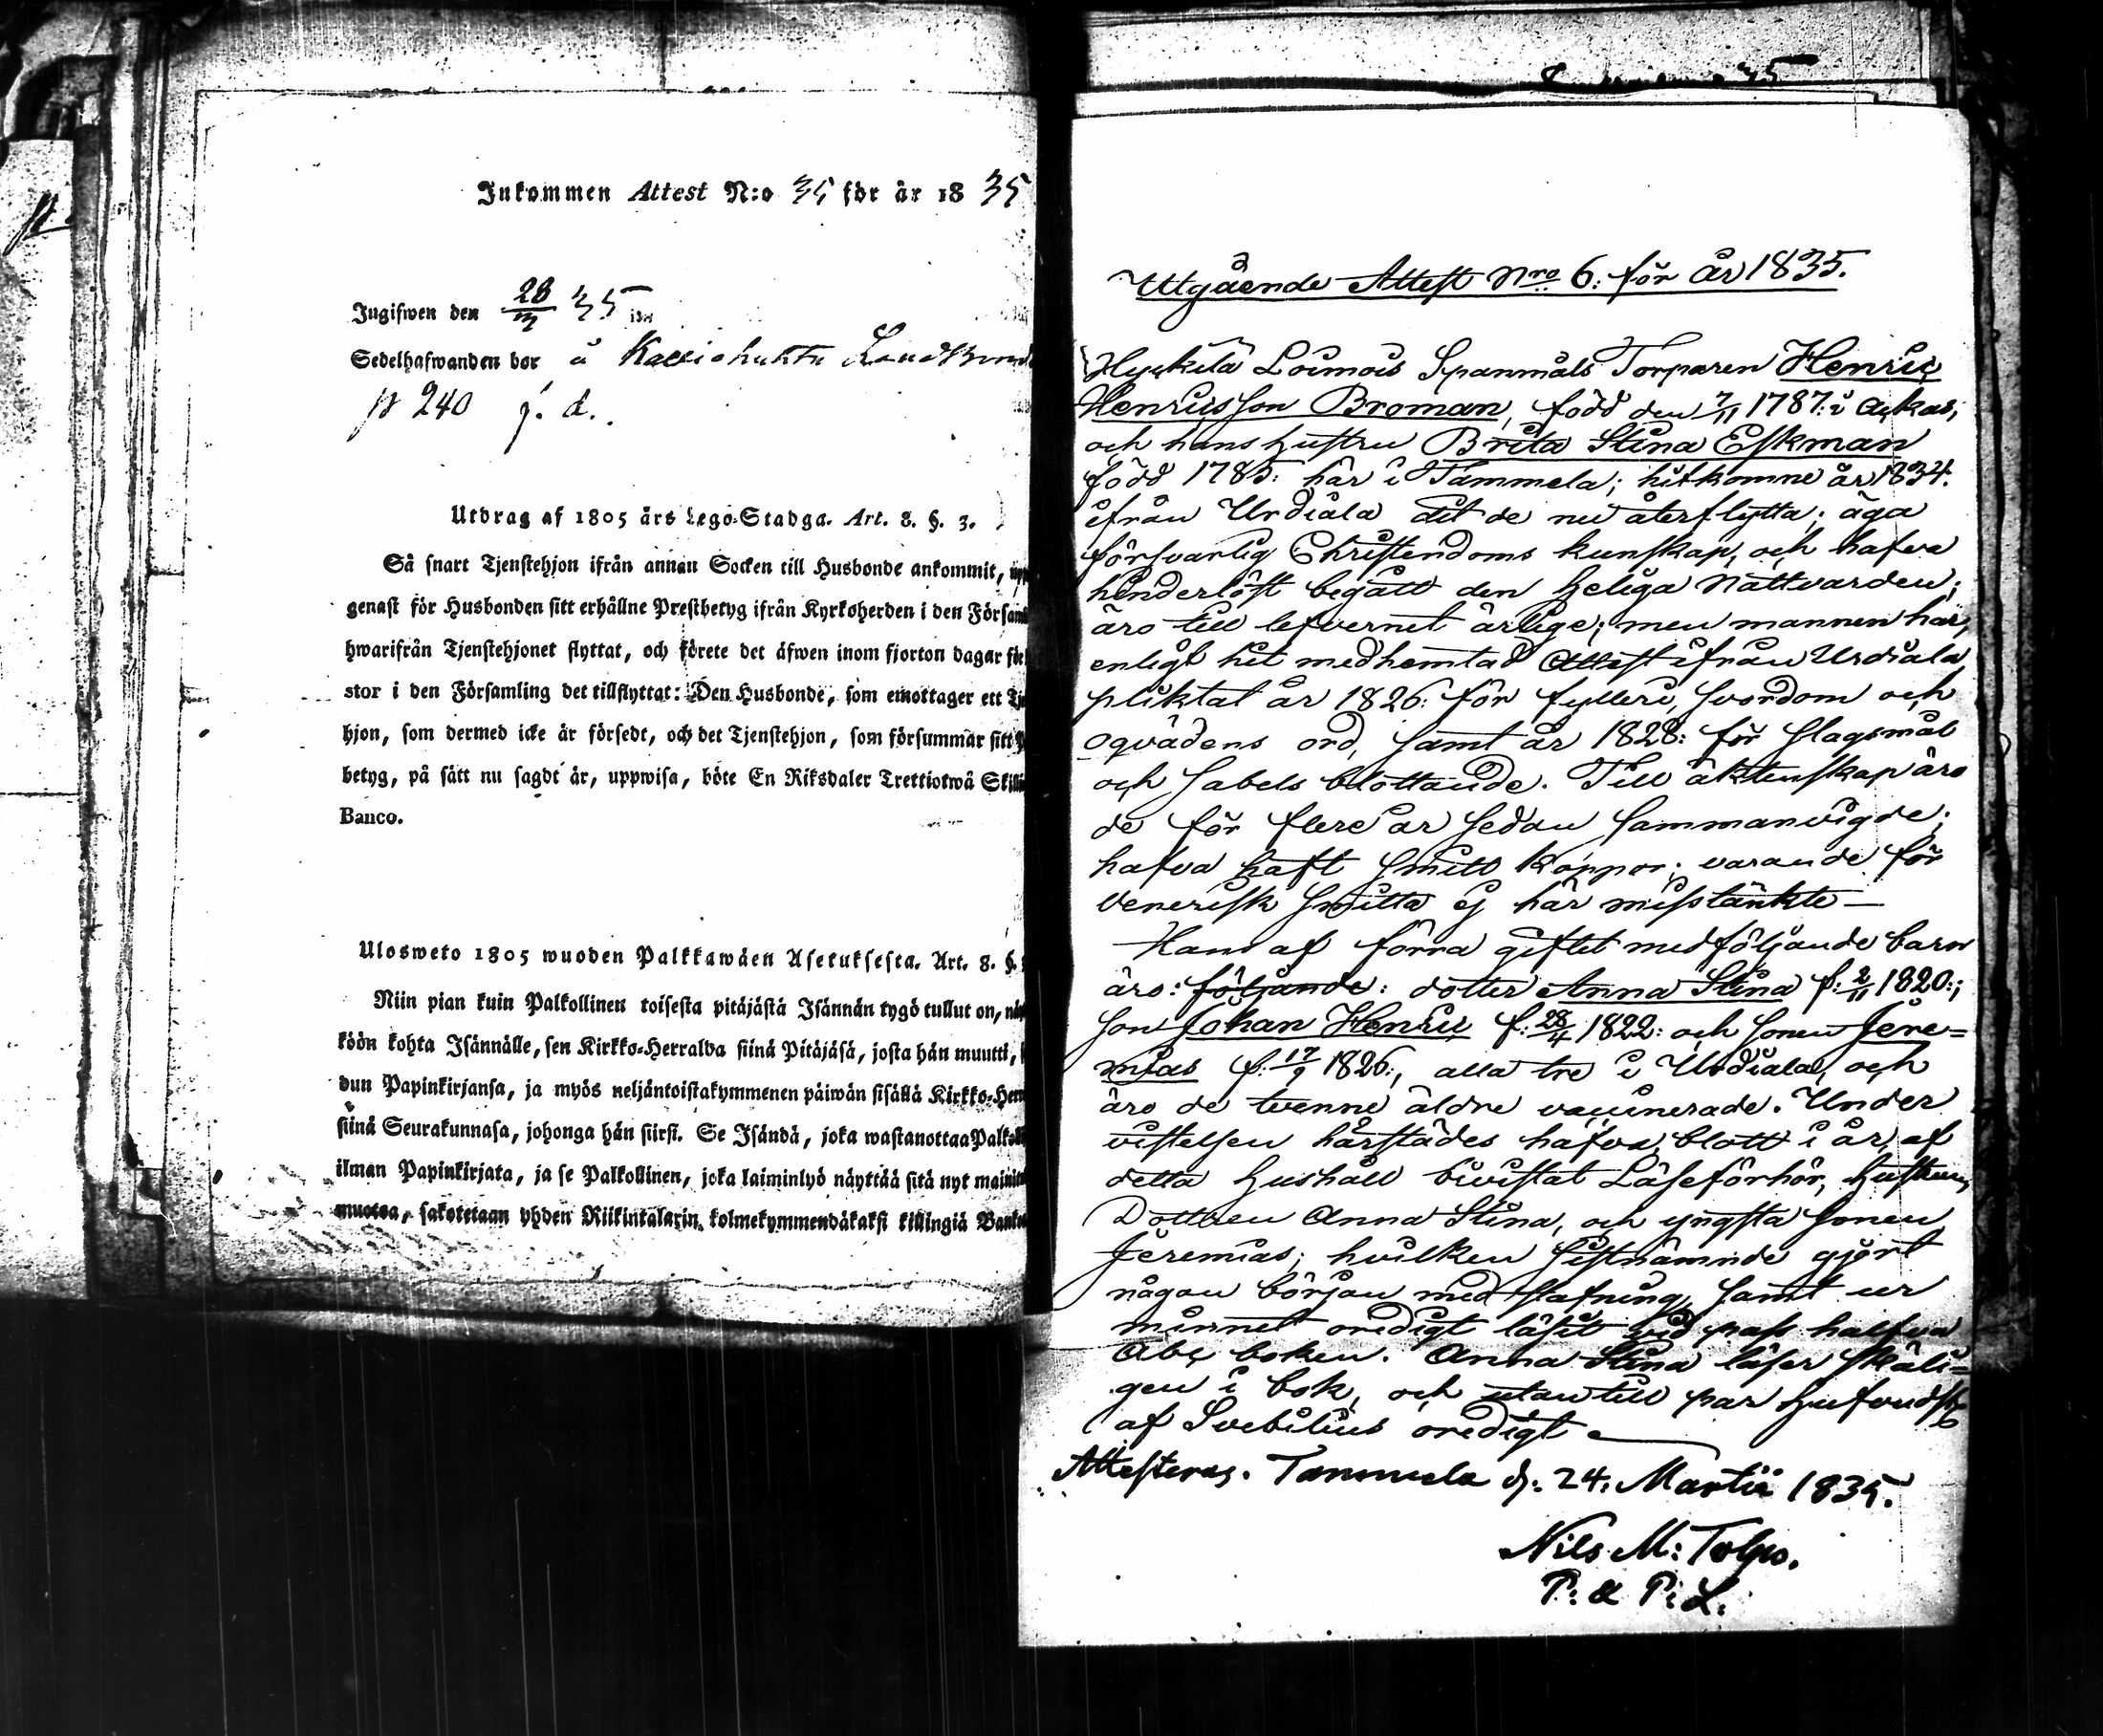 Inkommen Attest N:o 35 för år 1835
Ingifwen den 28/3 35
Sedelhafwanden bor å
p 240 j. d.
Utdrag af 1805 års Lego-Stadga. Art. 8. §. 3.
Så snart Tjenstehjon ifrån annan Socken till Husbonde ankommit,
genast för Husbonden sitt erhållne Prestbetyg ifrån Kyrkoherden i den
hwarifrån Tjenstehjonet flyttat, och förete det äfwen inom fjorton dagar
stor i den Församling det tillflyttat: Den Husbonde, som emottager ett
hjon, som dermed icke är försedt, och det Tjenstehjon, som försummar sitt
betyg, på sätt nu sagdt är, uppwisa, böte En Riksdaler Trettiotwå
Banco.
Ulosweto 1805 wuoden Palkkawäen Asetuksesta. Art. 8. §.
Niin pian kuin Palkollinen toisesta pitäjästä Isännän tygö tullut on,
köön kohta Isännälle, sen Kirkko-Herralda siinä Pitäjäsä, josta hän muutti,
dun Papinkirjansa, ja myös neljäntoistakymmenen päiwän sisällä
siinä Seurakunnasa, johonga hän siirsi. Se Isändä, joka wastanottaa
ilman Papinkirjata, ja se Palkollinen, joka laiminlyö näyttää sitä nyt
muotoa, sakotetaan yhden Riikintalarin kolmekymmendäkaksi killingiä
Utgående Attest Nro 6: för år 1835.
Hyykilä Loimois Spanmåls Torparen Henric
Henricsson Broman, född den 7/11 1787: i Ackas,
och hans hustru Brita Stina Eskman
född 1785: här i Tammela; hitkomne år 1834.
ifrån Urdiala dit de nu återflytta; äga
försvarlig Christendoms kunskap, och hafva
hinderlöst begått den heliga Nattvarden;
äro till lefvernet ärlige; men mannen har,
enligt hit medhemtad Attest ifrån Urdiala,
pliktat år 1826: för fylleri, svordom och
oqvädens ord, samt år 1828: för slagsmål
och sabels blottande. Till äktenskap äro
de för flere år sedan sammanvigde;
hafva haft Smitt Koppor; varande för
Venerisk smitta ej här misstänkte —
Hans af förra giftet medföljande barn
äro: följande: dotter Anna Stina f: 2/11 1820:;
son Johan Henric f: 28/4 1822: och sonen Jere=
mias f: 17/9 1826:, alla tre i Urdiala, och
äro de tvenne äldre vaccinerade. Under
vistelsen härstädes hafva, blott i år, af
detta hushåll bivistat Läseförhör, hustrun,
Dottren Anna Stina, och yngsta sonen
Jeremias; hvilken sistnämnde gjort
någon början med stafning, samt ur
minnet oredigt läsit vid pass halfva
Abc boken. Anna Stina läser skäli=
gen i bok, och utantill par
af Svebilius oredigt
Attesteras. Tammela d: 24. Martii 1835.
Nils M: Tolpo.
P: & P: L: